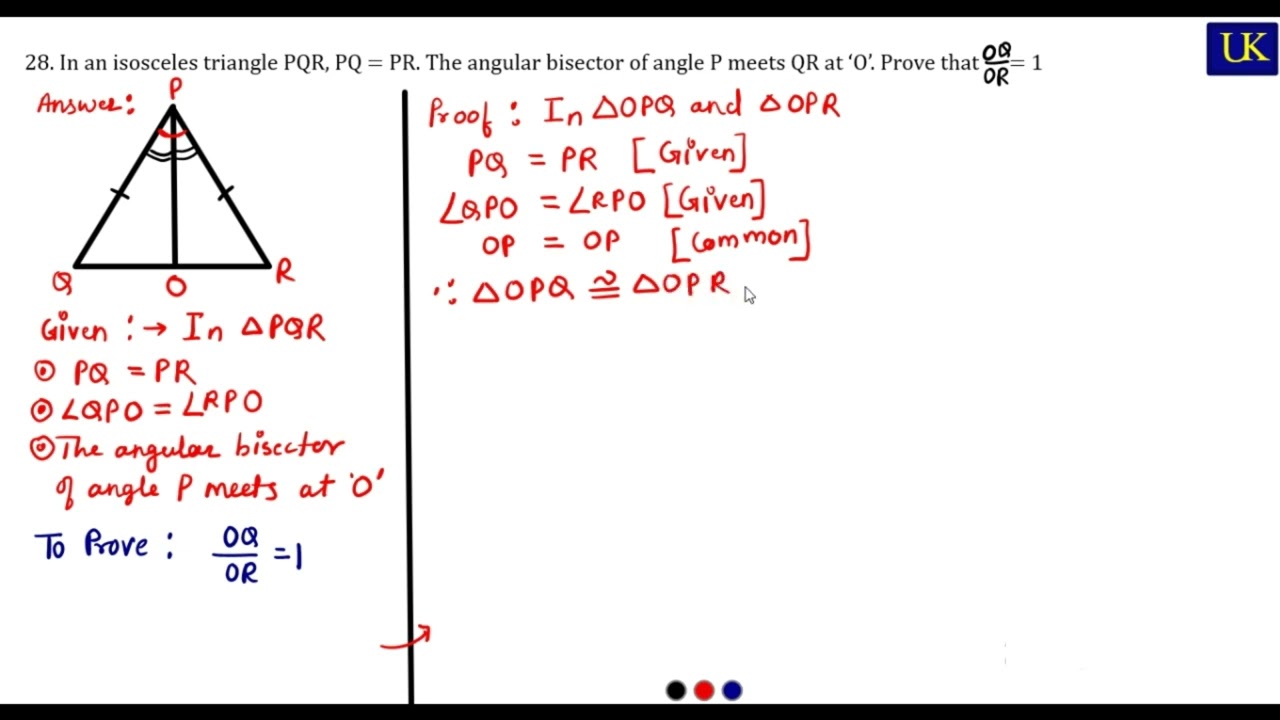 UK
28. In an isosceles triangle PQR, PQ = PR. The angular bisector of angle P meets QR at ‘O’. Prove that OQ/OR = 1
Answer:
P
Q
O
R
Given : → In △PQR
⊙ PQ = PR
⊙ ∠QPO = ∠RPO
⊙ The angular bisector
of angle P meets at 'O'
To Prove : OQ/OR = 1
Proof : In △OPQ and △OPR
PQ = PR [Given]
∠QPO = ∠RPO [Given]
OP = OP [Common]
∴ △OPQ ≅ △OPR